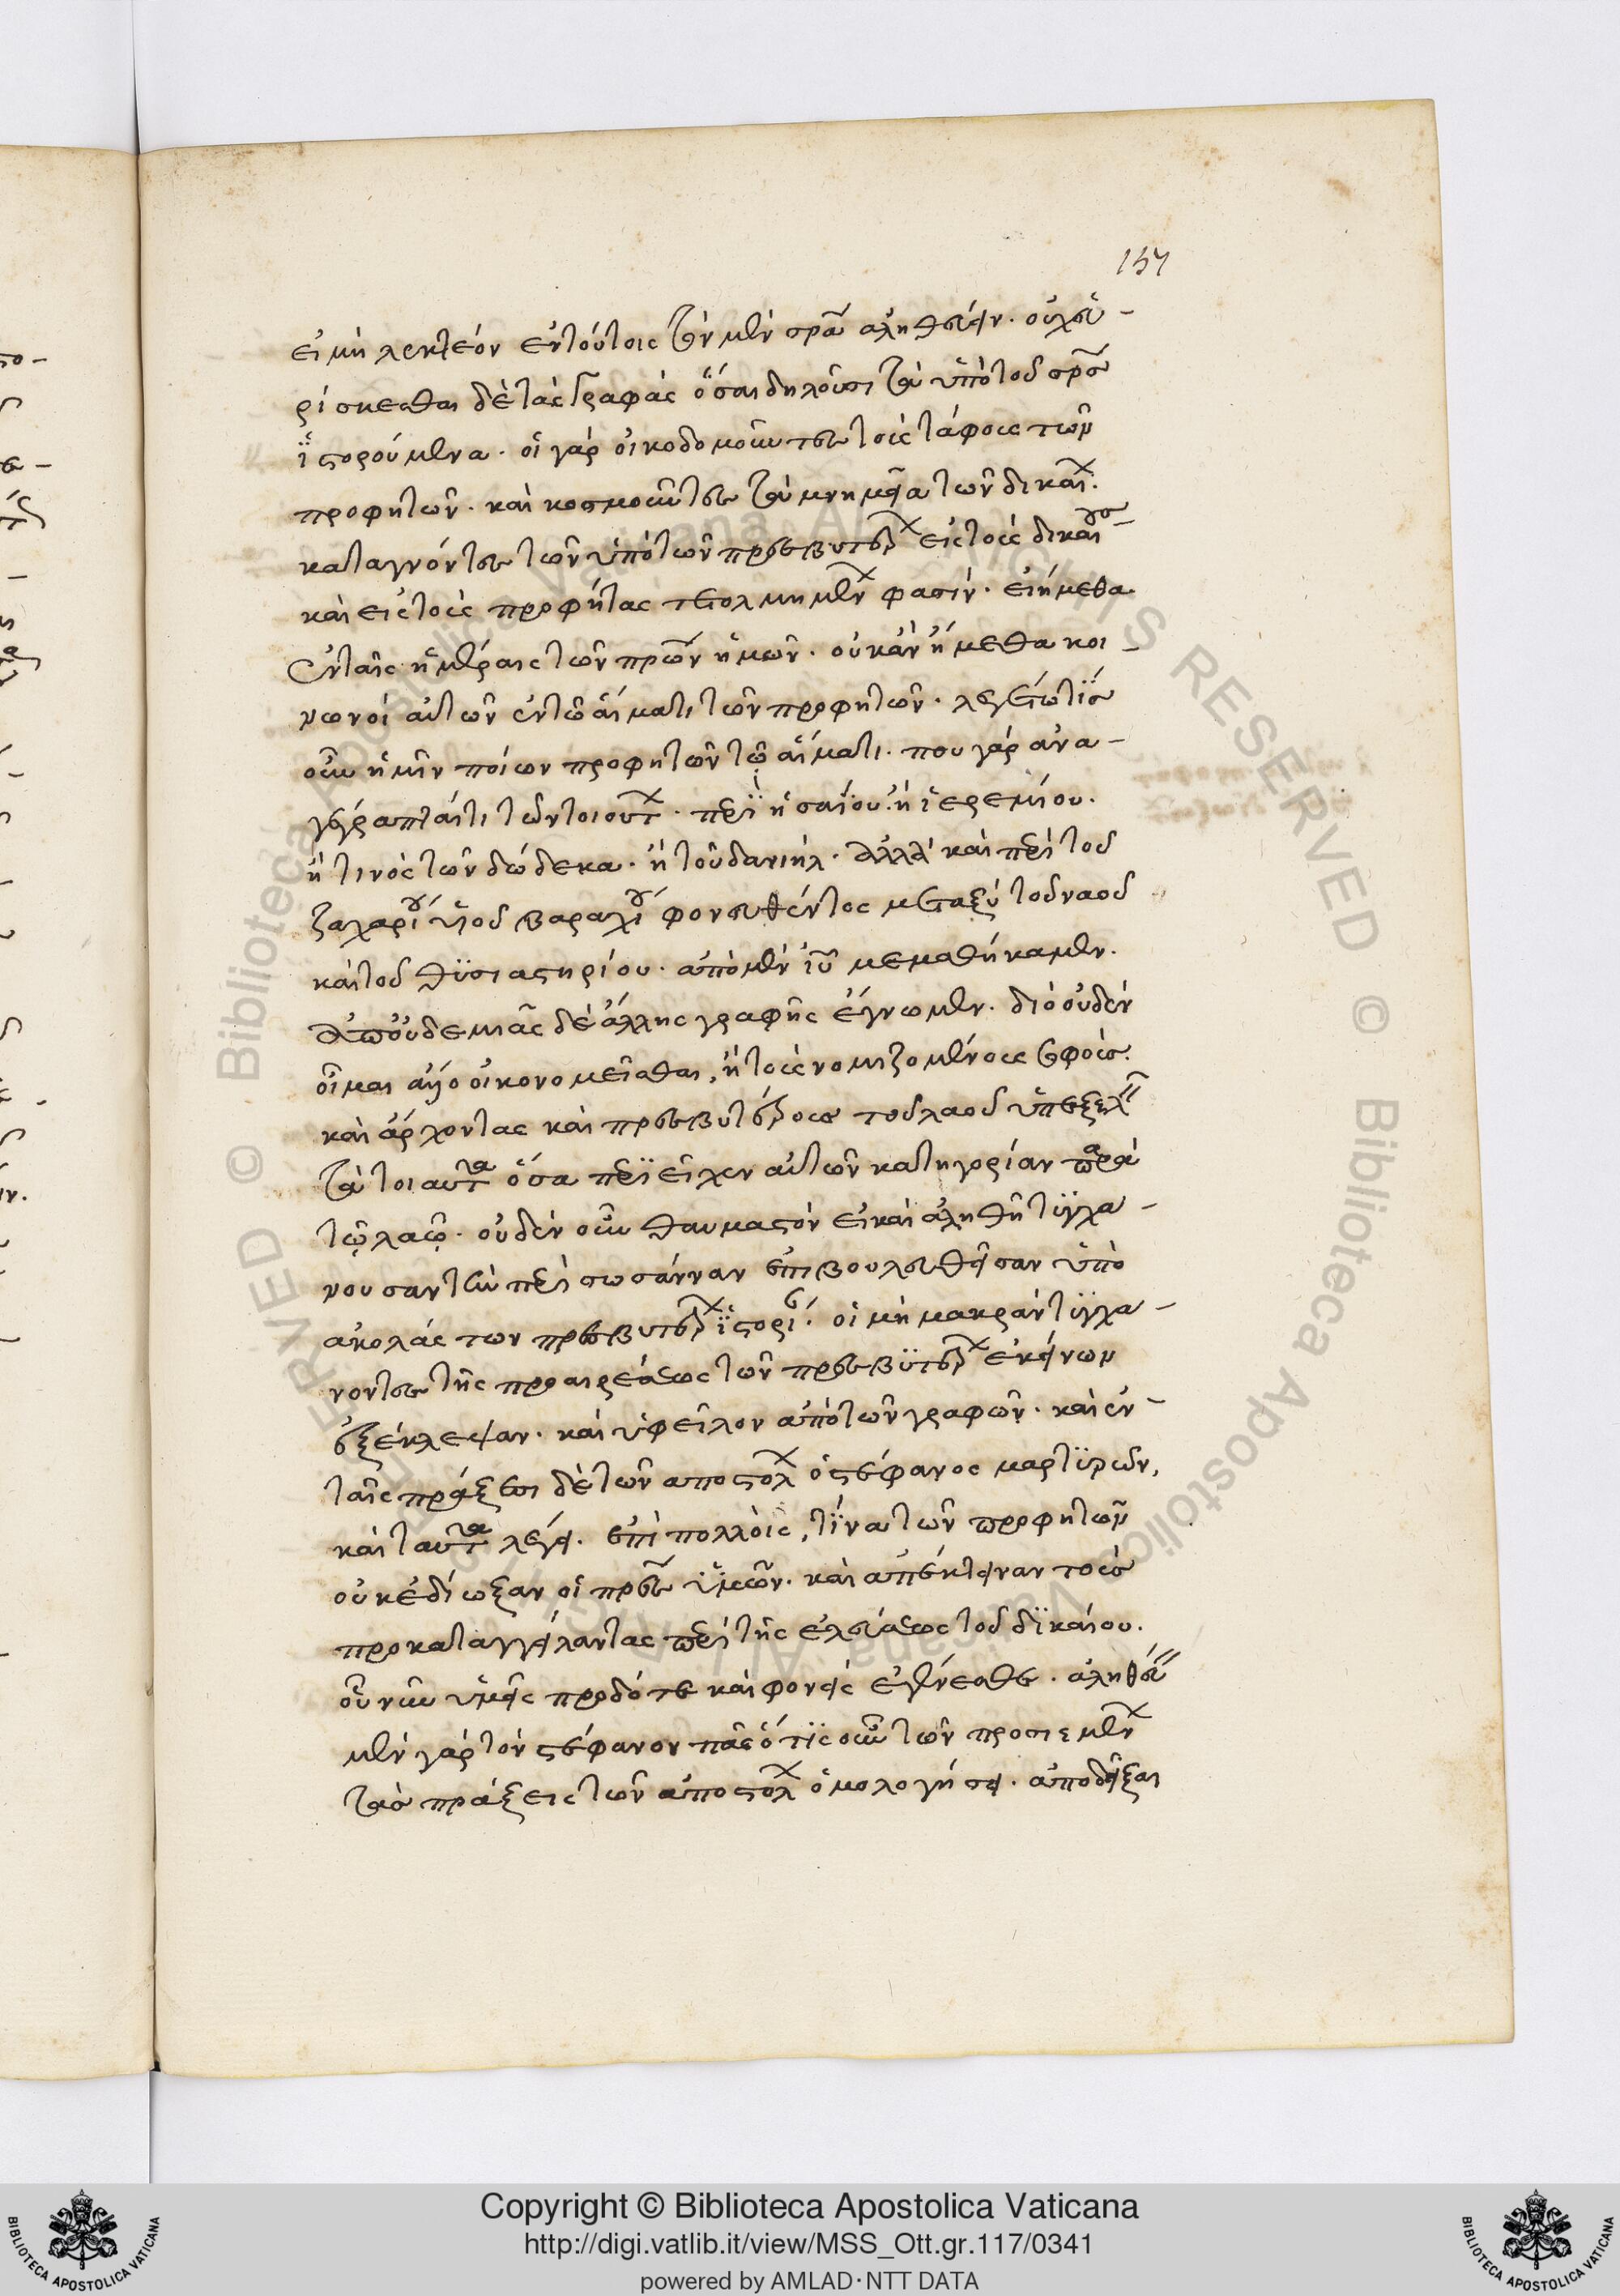 157
εἰ μὴ λεκτέον ἐν τούτοις τὸν μὲν σρα ἀληθεύειν. οὐχ εὑ-
ρίσκεσθαι δὲ τὰς γραφὰς ὅσαι δηλοῦσι τὰ ὑπὸ τοῦ σρσ
ἱστορούμενα. οἱ γὰρ οἰκοδομοῦντες τοὺς τάφους τῶν
προφητῶν. καὶ κοσμοῦντες τὰ μνημεῖα τῶν δικαί.
καταγνόντες τῶν ὑπὸ τῶν πρεσβυτερ εἰς τοὺς δικαίους
καὶ εἰς τοὺς προφήτας τετολμημέν φασίν. εἰ ἤμεθα
ἐν ταῖς ἡμέραις τῶν πρων ἡμῶν. οὐκ ἂν ἤμεθα κοι-
νωνοὶ αὐτῶν ἐν τῶ αἵματι τῶν προφητῶν. λεγέτω τίσ
οὖν ἡμῖν ποίων προφητῶν τῷ αἵματι. που γὰρ ἀνα-
γέγραπταί τι τῶν τοιουτ. περὶ ἡσαΐου. ἢ ἱερεμίου.
ἤ τινὸς τῶν δώδεκα. ἢ τοῦ δανιήλ. ἀλλὰ καὶ περὶ τοῦ
ζαχαρίου υἱοῦ βαραχίου φονευθέντος μεταξὺ τοῦ ναοῦ
καὶ τοῦ θυσιαστηρίου. ἀπὸ μὲν ιυ μεμαθήκαμεν.
ἀπ' οὐδεμιᾶς δὲ ἄλλης γραφῆς ἔγνωμεν. διὸ οὐδὲν
οἶμαι ἄλλο οἰκονομεῖσθαι, ἢ τοὺς νομιζομένους σοφοὺς.
καὶ ἄρχοντας καὶ πρεσβυτέρους τοῦ λαοῦ ὑπεξελεῖν
τὰ τοιαῦτα ὅσα περιεῖχεν αὐτῶν κατηγορίαν παρὰ
τῷ λαῷ. οὐδὲν οὖν θαυμαστὸν εἰ καὶ ἀληθῆ τυγχά-
νουσαν τὴν περὶ σωσάνναν ἐπιβουλευθεῖσαν ὑπὸ
ακολάς των πρεσβυτερ ἱστορί. οἱ μὴ μακρὰν τυγχά-
νοντες τῆς προαιρέσεως τῶν πρεσβυτερ ἐκείνων
ἐξέκλεψαν. καὶ ὑφεῖλον ἀπὸ τῶν γραφῶν. καὶ ἐν-
ταῖς πράξεσι δὲ τῶν αποστολ ὁ στέφανος μαρτυρῶν,
καὶ ταῦτα λέγει. ἐπὶ πολλοῖς, τίνα τῶν προφητῶν
οὐκ ἐδίωξαν οἱ πρες ὑμῶν. καὶ ἀπέκτειναν τοὺσ
προκαταγγείλαντας περὶ τῆς ἐλεύσεως τοῦ δικαίου.
οὗ νῦν ὑμεῖς προδόται καὶ φονεῖς ἐγένεσθε. ἀληθεύειν
μὲν γὰρ τὸν στέφανον πᾶς ὁ τισοῦν τῶν προσιεμέν
τὰσ πράξεις τῶν ἀποστολ ὁμολογήσει. ἀποδεῖξαι
Copyright © Biblioteca Apostolica Vaticana
http://digi.vatlib.it/view/MSS_Ott.gr.117/0341
powered by AMLAD·NTT DATA